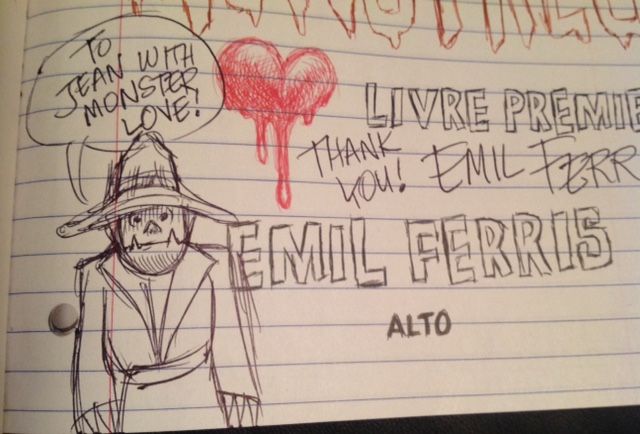 TO
JEAN WITH
MONSTER
LOVE!
LIVRE PREMIE
THANK
YOU! EMIL FERR
EMIL FERRIS
ALTO